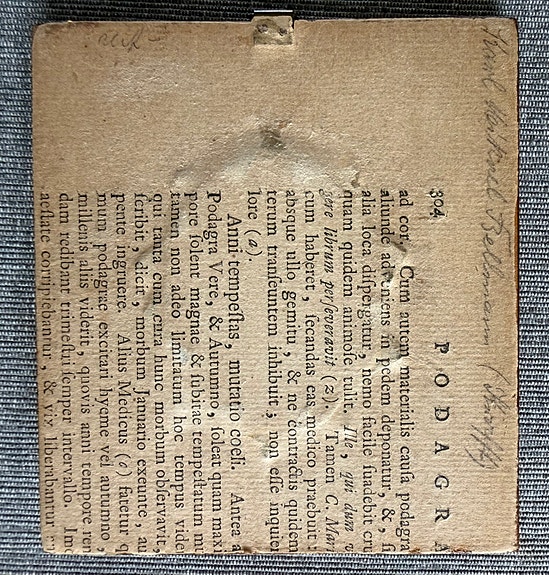 Carl Michael Bellmann
304 PODAGRA
ad cor. Cum autem materialis cauſa podagra
aliunde adveniens in pedem deponatur, &
alia loca diſpergatur, nemo facile ſuadebit
quam quidem animoſe tulit. Ille, qui dum
gere librum perſeveravit (z). Tamen C. Mar
cum haberet, ſecandas eas medico praebuit
absque ullo gemitu, & ne contractus quidem
terum tranſeuntem inhibuit; non eſſe inquien
lore (a).
Anni tempeſtas, mutatio coeli. Anrea
Podagra Vere, & Autumno, ſoleat quam maxi
pore ſolent magnae & ſubitae tempeſtatum
tamen non adeo limitatum hoc tempus
qui tanta cum cura hunc morbum obſervavit,
ſcribit, dicit, morbum Januario exeunte, au
pente ingruere. Alius Medicus (c) fatetur q
mum podagrae excitari hyeme vel autumno,
millenis aliis viderit, quovis anni tempore
dam redibant trimeſtri ſemper intervallo.
aeſtate corripiebantur, & vix liberabantur